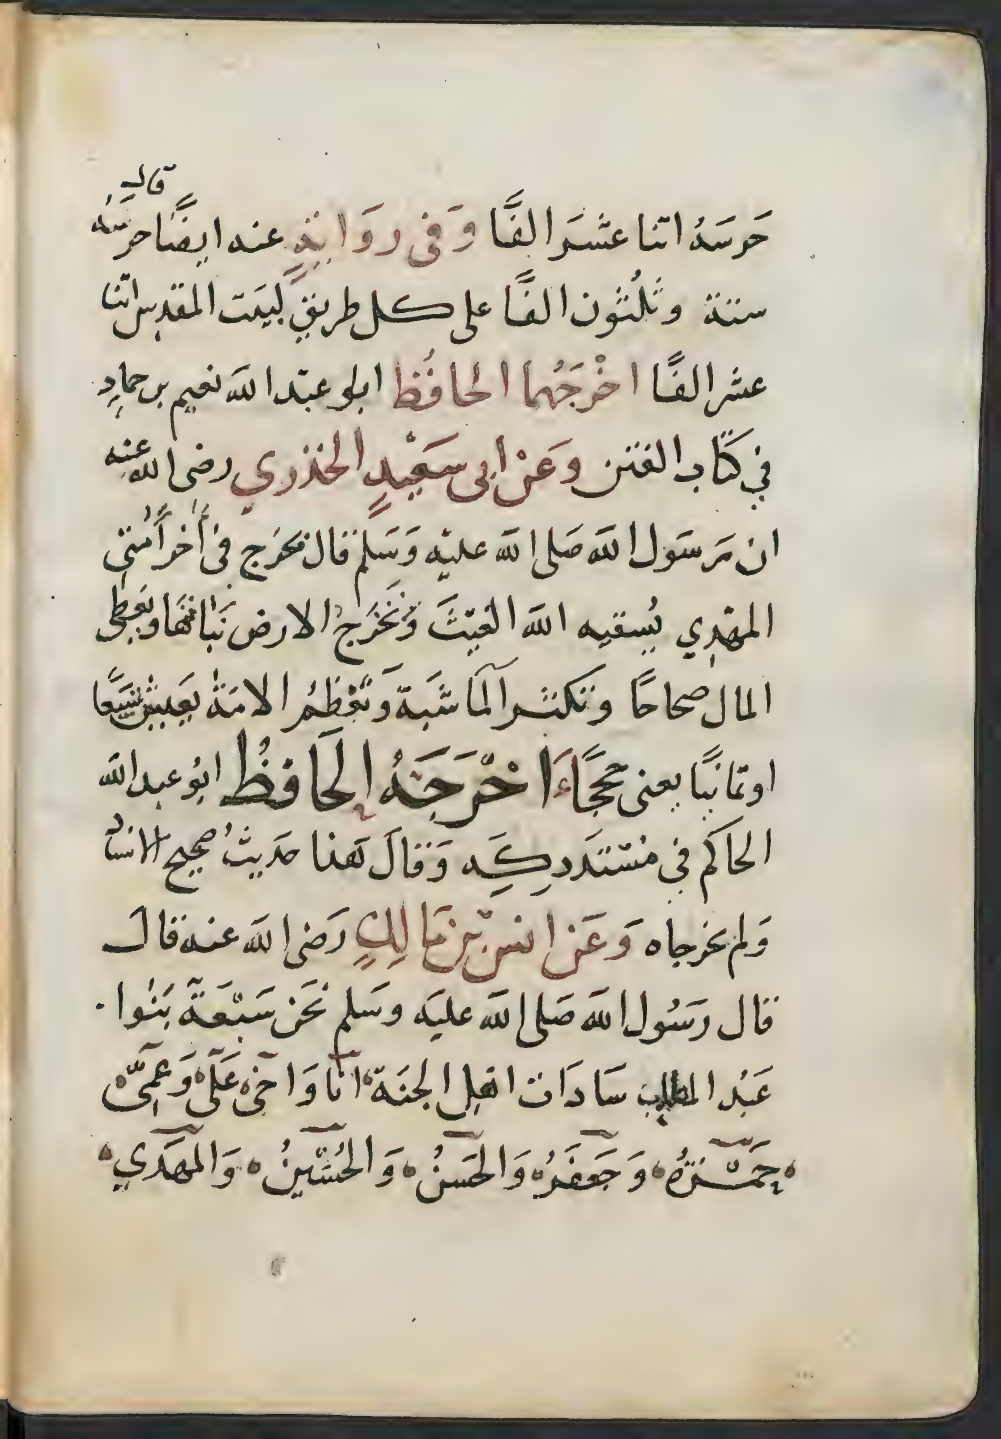 قال
حَرسَهُ اثنا عشَر الفًا وَفى روَايةٍ عنه ايضًا حرسَه
ستة وثلثون الفًا على كل طريق لبيَت المقدس اثنا
عشر الفًا اخْرجَهُما الحافُظ ابو عبد الله نعيم بن حماد
في كتاب الفتن وعَن ابى سَعيدٍ الخذري رضى الله عنه
ان رَسَول الله صَلى الله عليه وَسَلم قال يخرَج فى أخر أمتى
المهدي يُسقيه الله الغيثَ وَتخَرجُ الارض نَباتها ويَعطى
المال صحاحًا وتكثر المَاشَية وَتعْظمُ الامَة يَعيش سَبعًا
او ثمانيًا يعنى حججًا اخْرجَهُ الحَافظُ ابوُ عبد الله
الحاكم في مستدركهِ وَقالَ هذا حَديثُ صحيح الاسناد
وَلم يخرجاه وَعَن انس بن مَالِكٍ رَضى الله عنه قال
قال رَسُول الله صَلى الله عليَه وسَلم نحَن سَبعَة بَنوا
عَبْد المطلب سَادَات اهل الجنَة انا وَاخى عَلى وَعمِىّ
حَمزةُ وَجَعفَرُ وَالحَسنُ وَالحُسَينُ وَالمهَدي